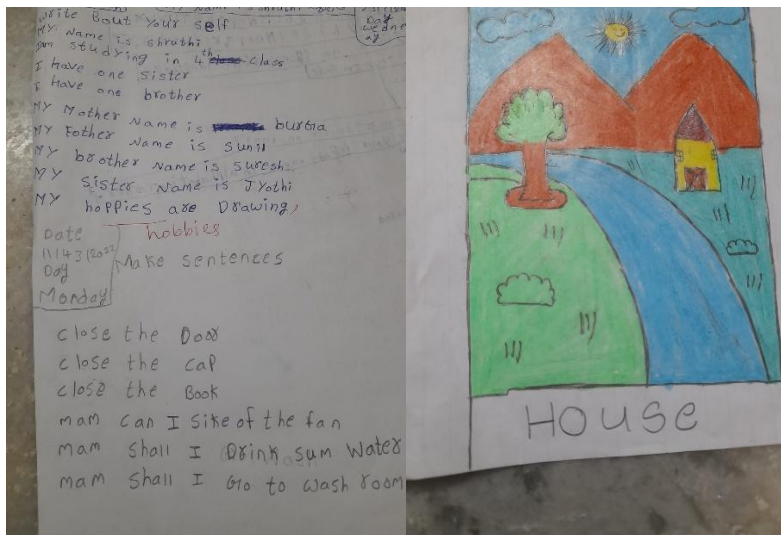 write Bout Your self
MY Name is shruthi
Iam studying in 4th class
I have one sister
I have one brother
MY Mother Name is burGa
MY Father Name is sunil
MY brother Name is suresh.
MY sister Name is JYothi
MY hoppies are Drawing,
hobbies
Date
Day
Monday
Make sentences
close the Door
close the cap
close the Book
mam can I sike of the fan
mam shall I Drink sum water
mam shall I Go to wash room
HOUSe